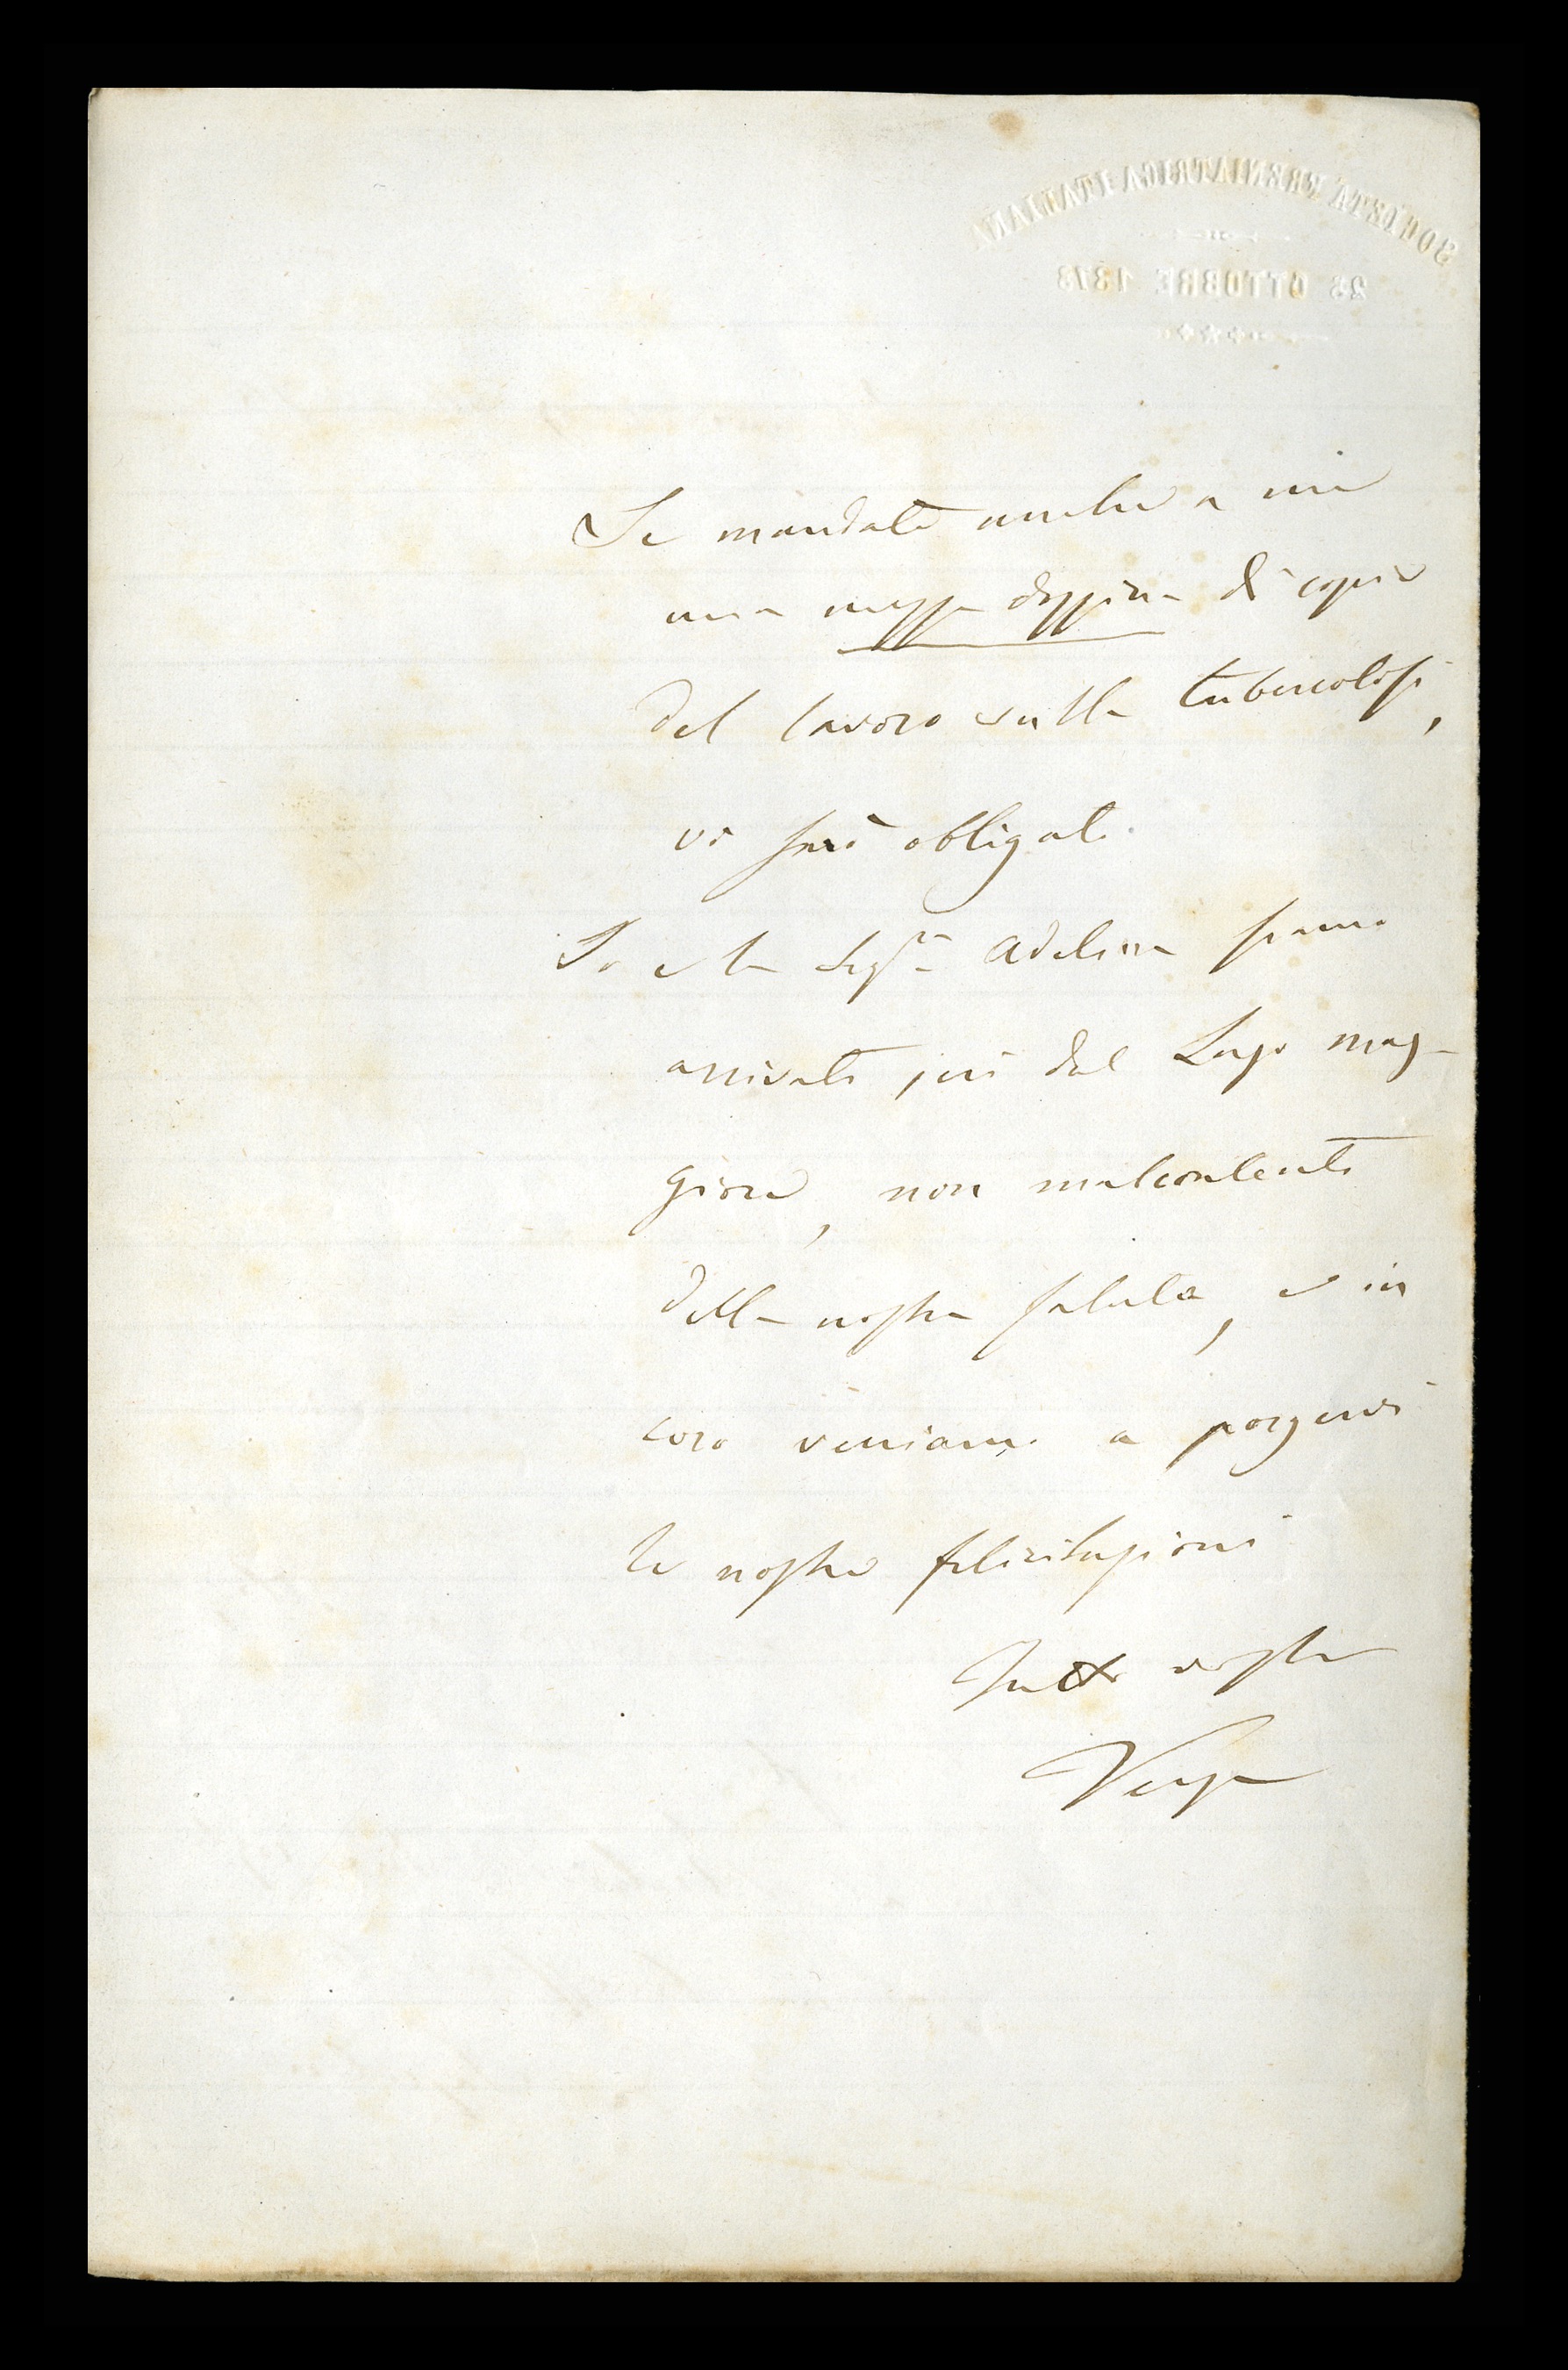 SOCIETÀ FRENIATRICA ITALIANA
23 OTTOBRE 1873
Se mandate anche a me
una mezza dozzina di copie
del lavoro sulla tubercolosi,
vi sarò obligato.
Io e la Sigra Adelina siamo
arrivati jeri dal Lago mag-
giore, non malcontenti
della nostra salute, e in
coro veniamo a porgervi
le nostre felicitazioni
Tutto vostro
Verga